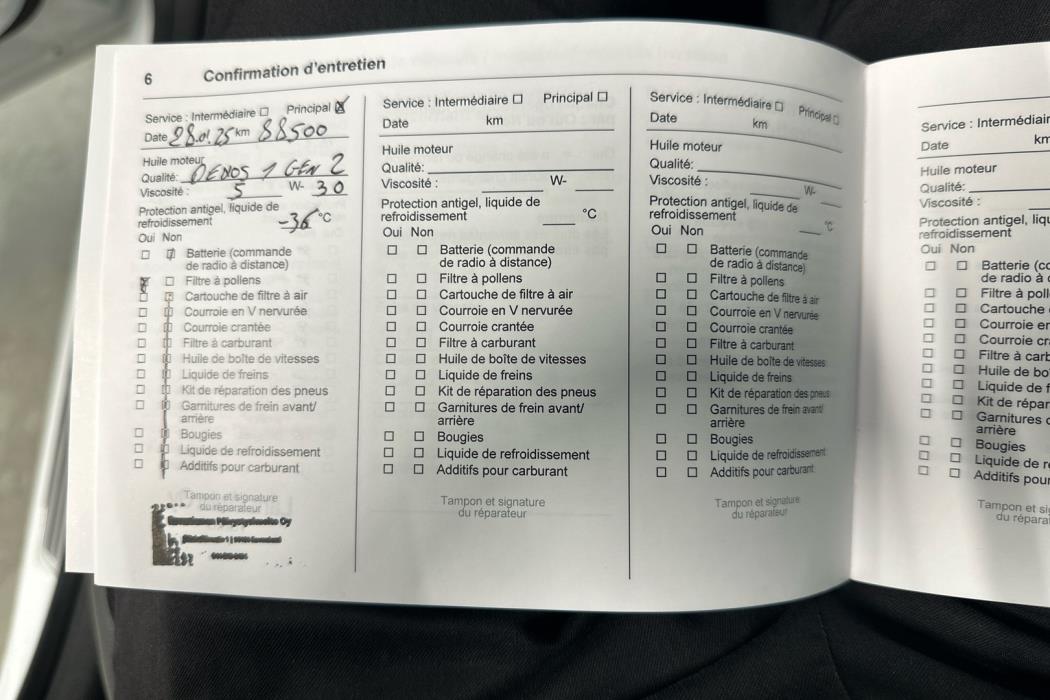 6 Confirmation d'entretien
Service : Intermédiaire Principal
Date 28.01.25 km 88500
Huile moteur
Qualité: DEXOS 1 GEN 2
Viscosité : 5 W- 30
Protection antigel, liquide de
refroidissement -36 °C
Oui Non
Batterie (commande
de radio à distance)
Filtre à pollens
Cartouche de filtre à air
Courroie en V nervurée
Courroie crantée
Filtre à carburant
Huile de boîte de vitesses
Liquide de freins
Kit de réparation des pneus
Garnitures de frein avant/
arrière
Bougies
Liquide de refroidissement
Additifs pour carburant
Tampon et signature
du réparateur
Oy
Service : Intermédiaire Principal
Date km
Huile moteur
Qualité:
Viscosité : W-
Protection antigel, liquide de
refroidissement °C
Oui Non
Batterie (commande
de radio à distance)
Filtre à pollens
Cartouche de filtre à air
Courroie en V nervurée
Courroie crantée
Filtre à carburant
Huile de boîte de vitesses
Liquide de freins
Kit de réparation des pneus
Garnitures de frein avant/
arrière
Bougies
Liquide de refroidissement
Additifs pour carburant
Tampon et signature
du réparateur
Service : Intermédiaire Principal
Date km
Huile moteur
Qualité:
Viscosité : W-
Protection antigel, liquide de
refroidissement °C
Oui Non
Batterie (commande
de radio à distance)
Filtre à pollens
Cartouche de filtre à air
Courroie en V nervurée
Courroie crantée
Filtre à carburant
Huile de boîte de vitesses
Liquide de freins
Kit de réparation des pneus
Garnitures de frein avant/
arrière
Bougies
Liquide de refroidissement
Additifs pour carburant
Tampon et signature
du réparateur
Service : Intermédiair
Date km
Huile moteur
Qualité:
Viscosité :
Protection antigel, liqu
refroidissement
Oui Non
Batterie (co
de radio à
Filtre à poll
Cartouche
Courroie en
Courroie cr
Filtre à carb
Huile de bo
Liquide de f
Kit de répar
Garnitures
arrière
Bougies
Liquide de r
Additifs pour
Tampon et si
du répara